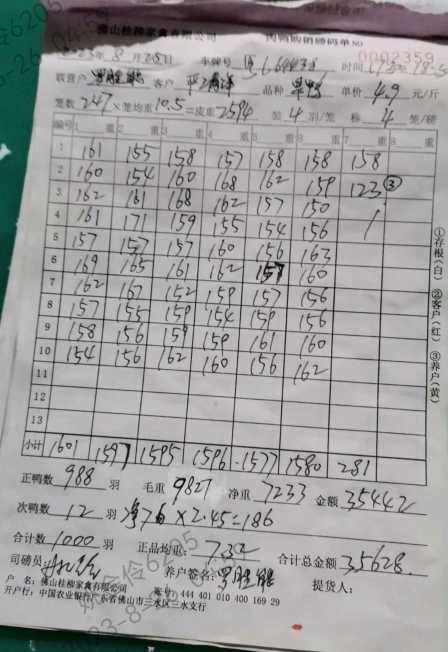 佛山桂柳家禽有限公司 肉鸭购销磅码单 №
0002359
2023年8月25日 车牌号 时间
联营户 客户 品种 单价 4.9 元/斤
笼数 247 ×笼均重 10.5 =皮重 2594 装 4 别/笼 称 4 笼/磅
编号 1 重 2 重 3 重 4 重 5 重 6 重 7 重 8 重
1 161 155 158 157 158 158 158
2 160 154 160 168 162 159 123 ③
3 162 161 168 162 157 150
4 161 171 159 155 154 156
5 157 157 157 160 156 163
6 169 165 161 162 157 160
7 162 167 152 159 157 156
8 157 155 159 154 159 156
9 158 156 159 159 161 160
10 154 156 162 160 156 162
11
12
13
小计 1601 1597 1595 1596 1577 1580 281
①存根(白) ②客户(红) ③养户(黄)
正鸭数 988 羽 毛重 9827 净重 7233 金额 35442
次鸭数 12 羽 净76 ×2.45=186
合计数 1000 羽 正品均重: 7.32 合计总金额 35628.
司磅员 养户签名: 提货人:
户 名: 佛山桂柳家禽有限公司 账号: 444 401 010 400 169 29
开户行: 中国农业银行广东省佛山市三水区三水支行